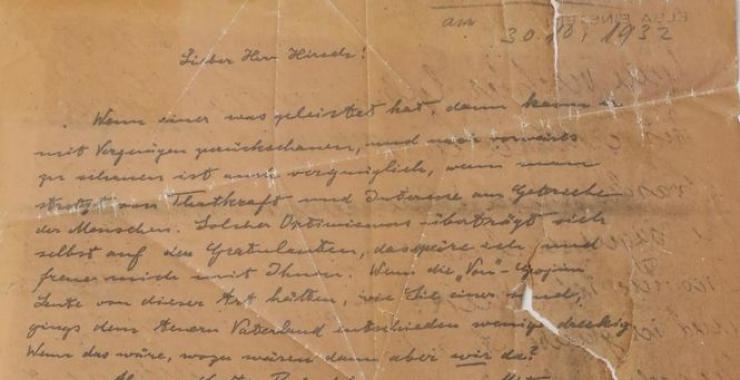 ELSA EINSTEIN
am 30.10.1932
Lieber Herr Hirsch!
Wenn einer was geleistet hat, dann kann er
mit Vergnügen zurückschauen, und nach vorwärts
zu schauen ist auch vergnüglich, wenn man
strotzt von Thatkraft und Interesse am Gebrechen
der Menschen. Solcher Optimismus überträgt sich
selbst auf den Gratulanten, das spüre ich, und
freue mich mit Ihnen. Wenn die
Leute von dieser Art hätten, wie Sie einer sind,
gings dem teuern Vaterland entschieden weniger dreckig
Wenn das wäre, wozu wären dann aber wir da?